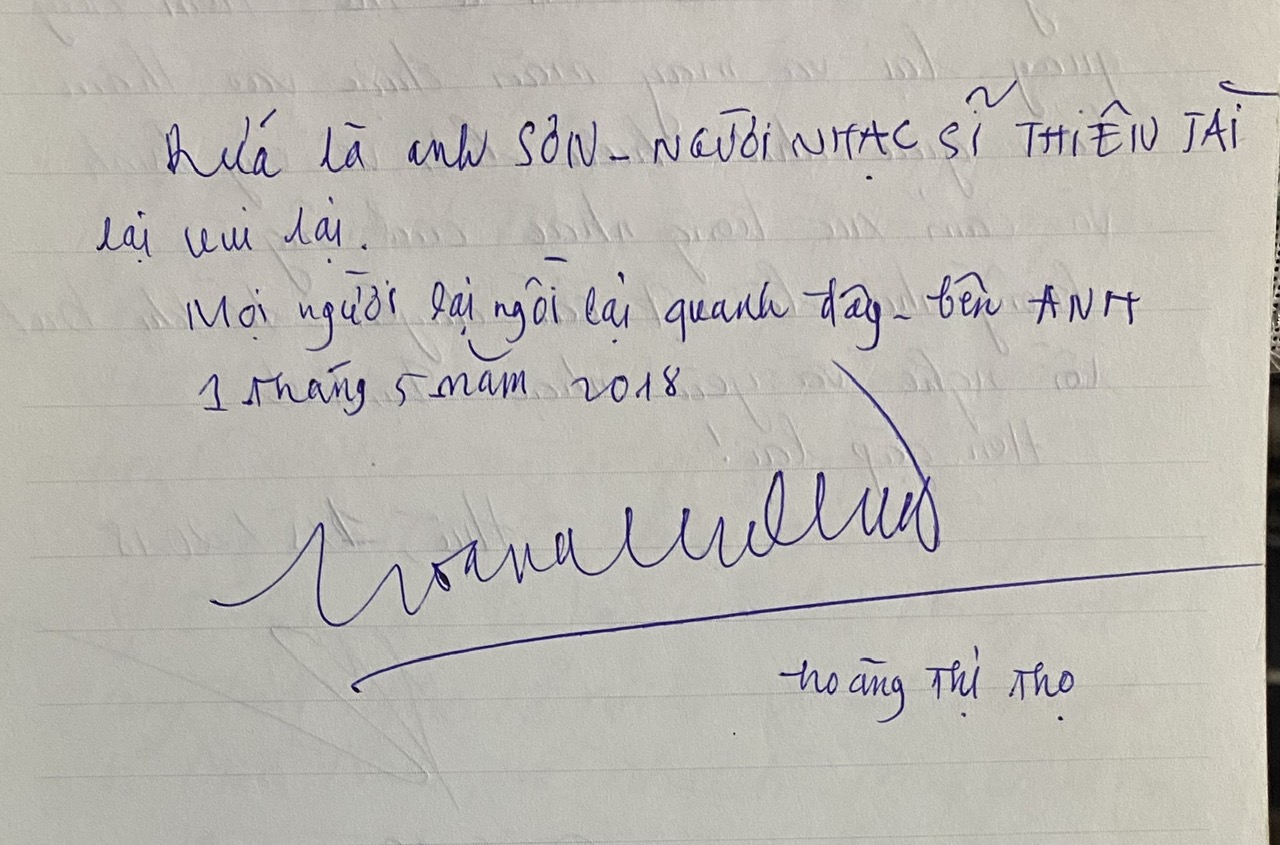 Rứa là anh SƠN - NGƯỜI NHẠC SĨ THIÊN TÀI
lại vui lại.
Mọi người lại ngồi lại quanh đây - bên ANH
1 tháng 5 năm 2018
Hoàng Thị Thọ